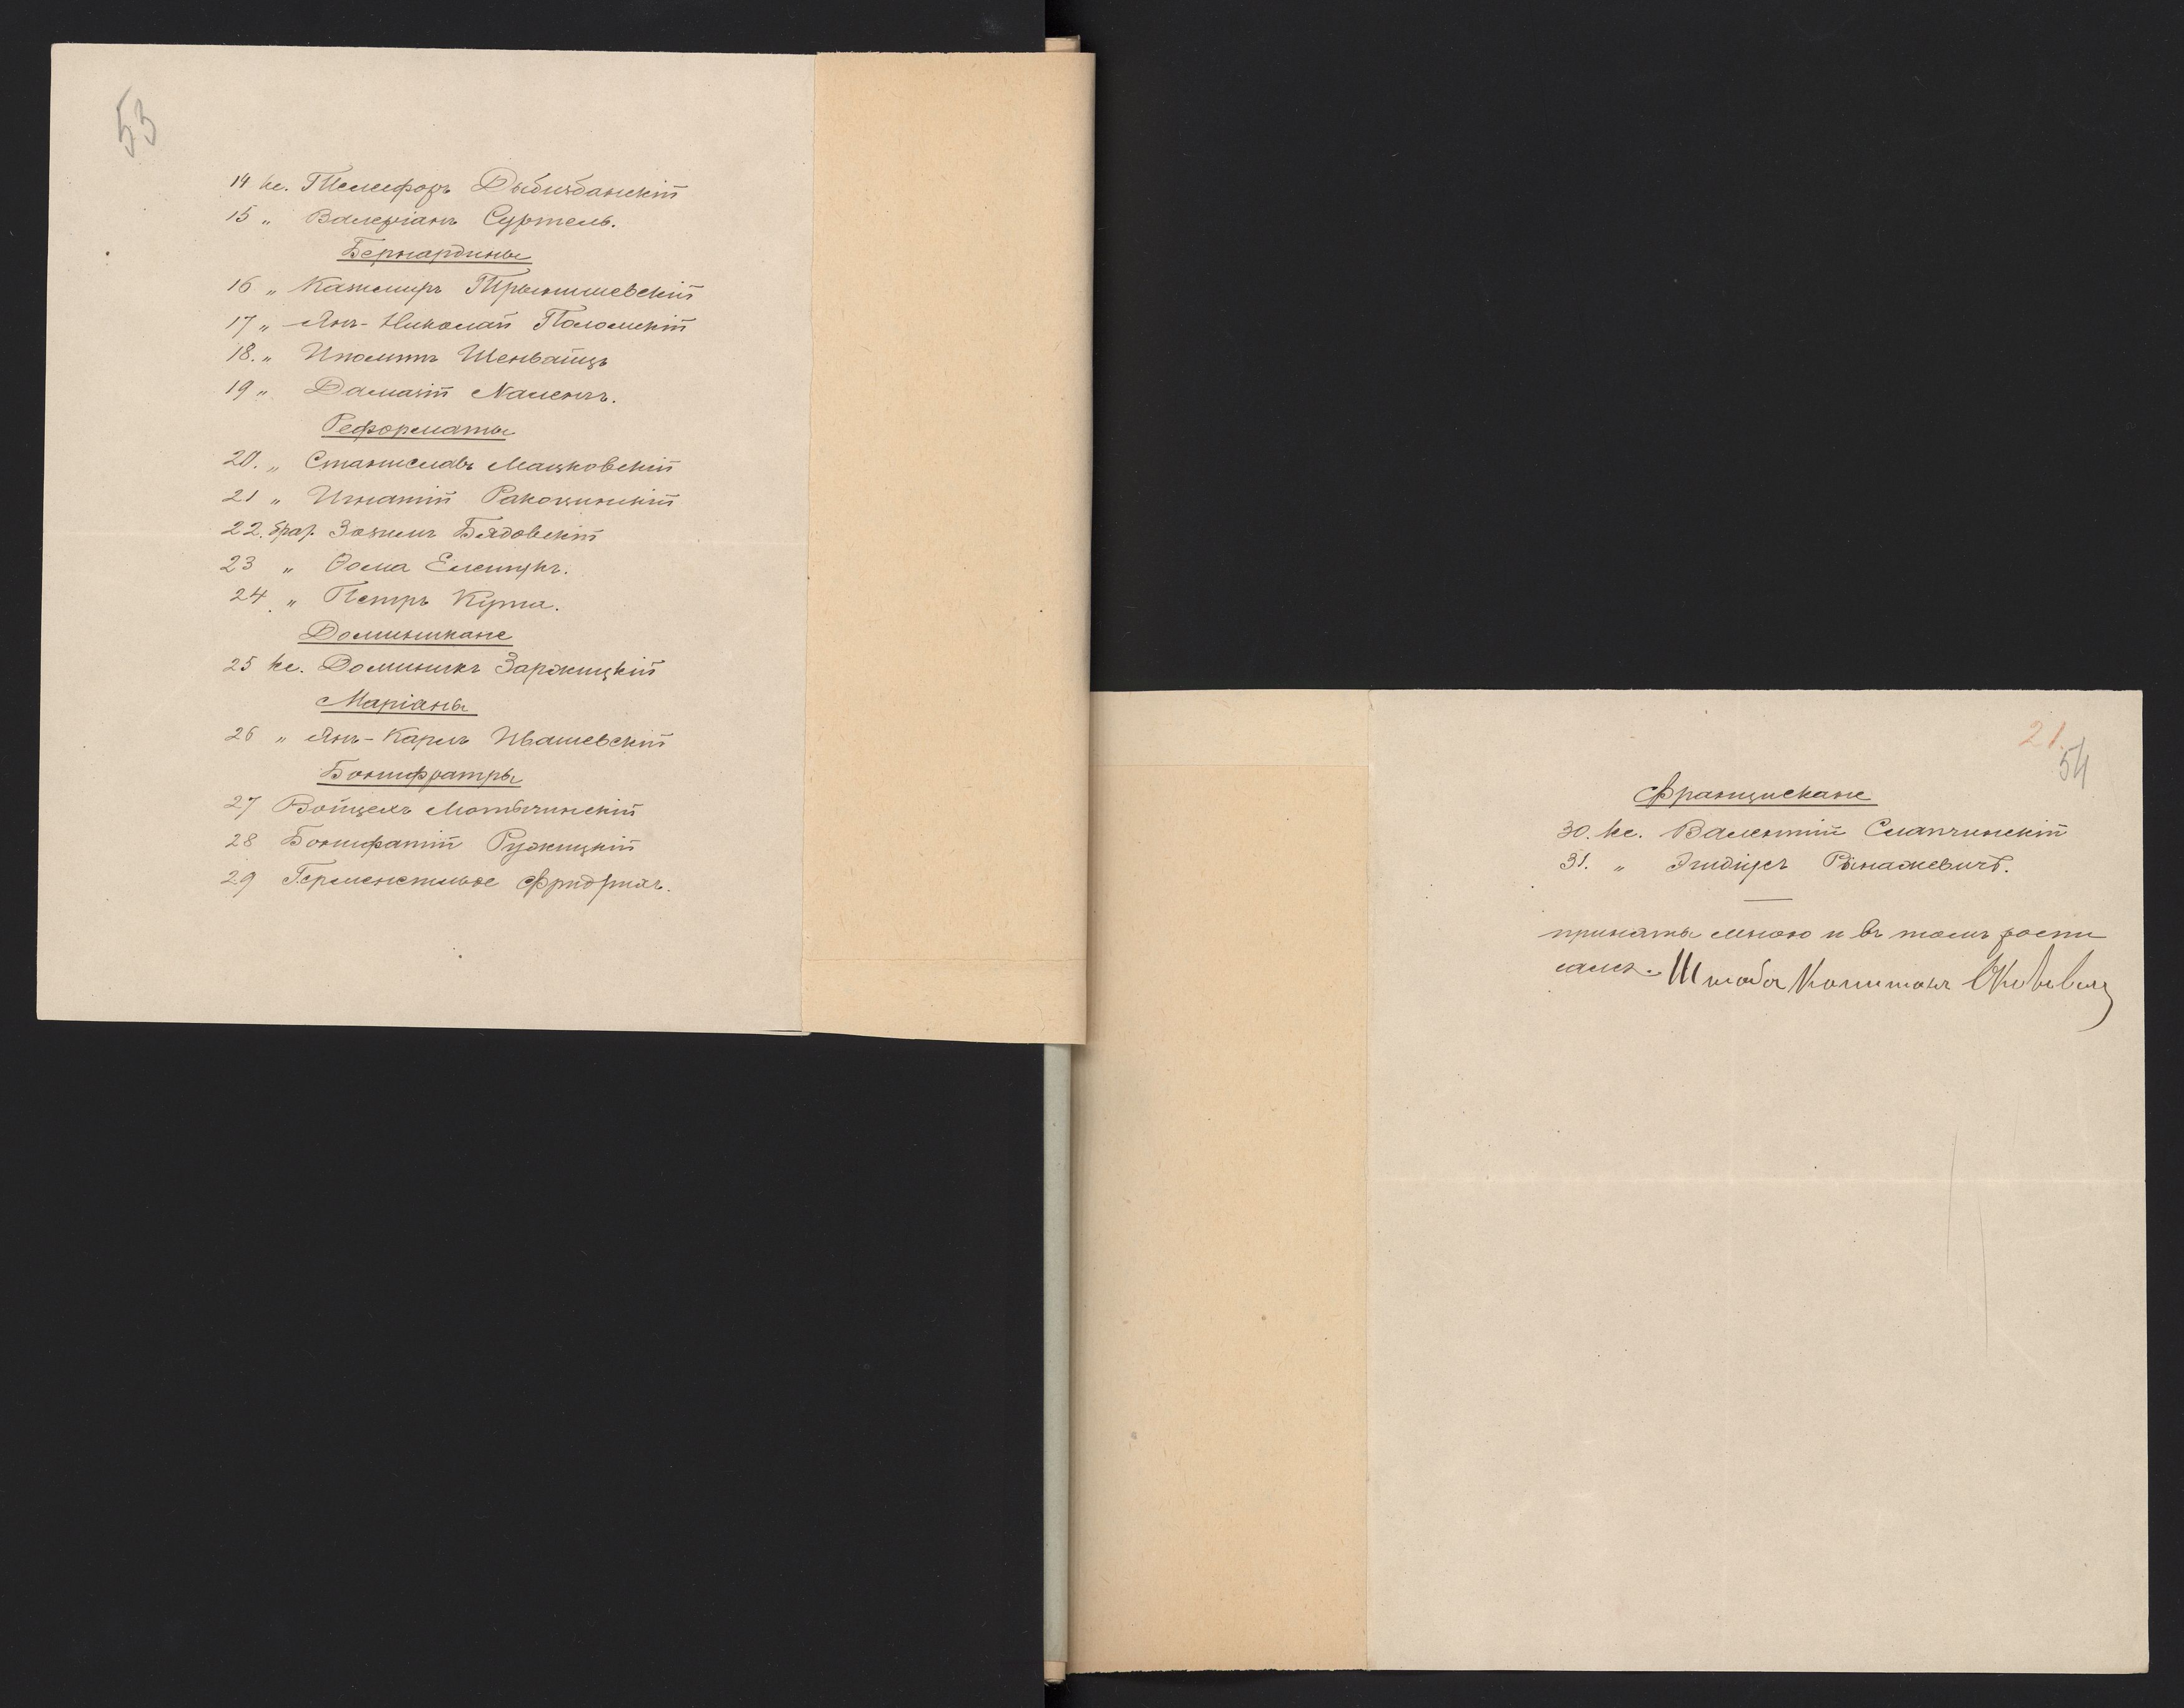 53
14 кс. Телесфоръ
15 „ Валеріанъ Суртель.
Бернардины
16 „ Казимиръ
17 „ Янъ-Николай Поломскій
18. „ Иполитъ Шенвайцъ
19 „ Дамазій
Реформаты
20. „ Станиславъ Мацковскій
21 „ Игнатій Ракочинскій
22. брат. Зозимъ Бядовскій
23 „ Ѳома
24 „ Петръ Курта.
Доминикане
25 кс. Доминикъ Заржицкій
Маріаны
26 „ Янъ-Карлъ Ивашевскій
Бонифратры
27 Войцехъ Мотычинскій
28 Бонифатій Ружицкій
29 Фридрихъ.
21.
54
Францискане
30. кс. Валентій Слапчинскій
31. „ Эгидіусъ
приняты мною и въ томъ роспи
сался. Штабсъ Капитанъ